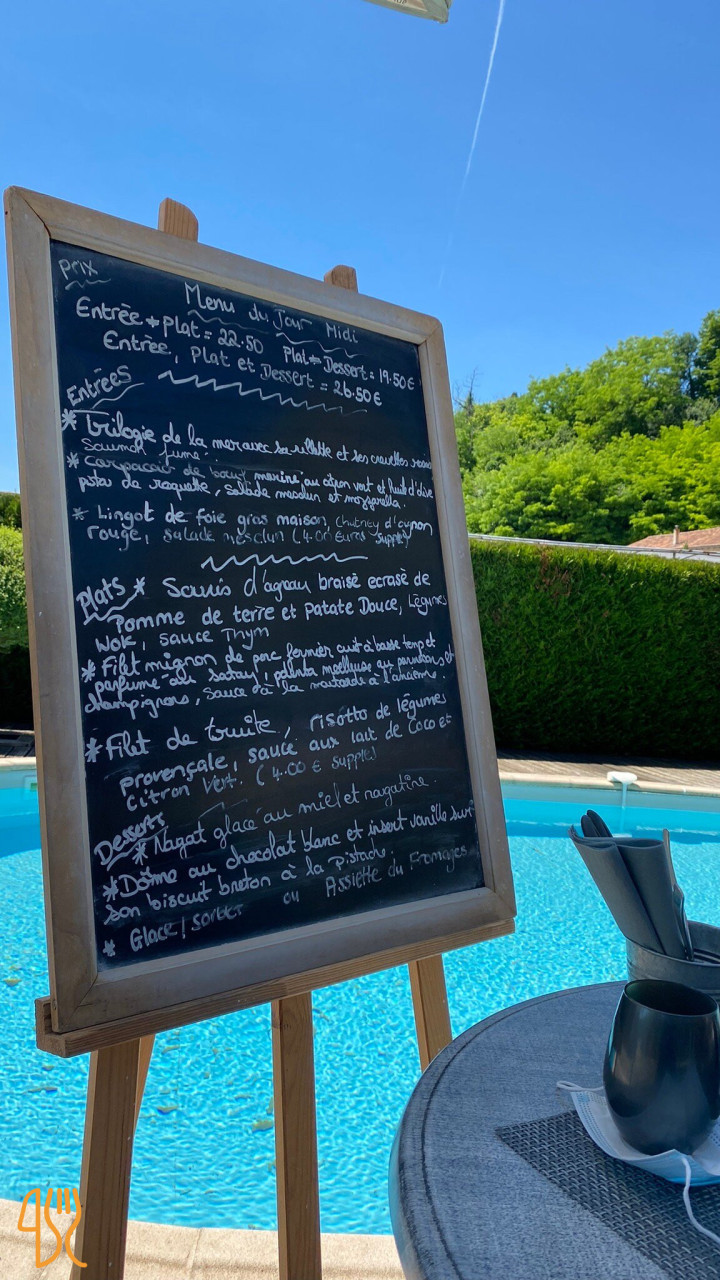 Prix
Menu du Jour Midi
Entrée + Plat = 22.50 Plat + Dessert = 19.50€
Entrée, Plat et Dessert = 26.50€
Entrées
* Trilogie de la mer avec sa rillette et ses crevettes
Saumon fumé.
* Carpaccio de bœuf mariné au citron vert et huile d'olive
pistou de roquette, salade mesclun et mozzarella.
* Lingot de foie gras maison, chutney d'oignon
rouge, salade mesclun (4.00 euros supple)
Plats * Souris d'agneau braisé ecrasé de
Pomme de terre et Patate Douce, Légumes
Wok, sauce Thym
* Filet mignon de porc fermier cuit à basse temp et
parfumé au satay, polenta moelleuse au parmesan et
champignons, sauce à la moutarde à l'ancienne.
* Filet de truite, risotto de légumes
provençale, sauce aux lait de Coco et
Citron Vert. (4.00 € supple)
Desserts
* Nagat glacé au miel et nagatine.
* Dôme au chocolat blanc et insert vanille sur
son biscuit breton à la Pistache.
* Glace / sorbet ou Assiette du Fromages